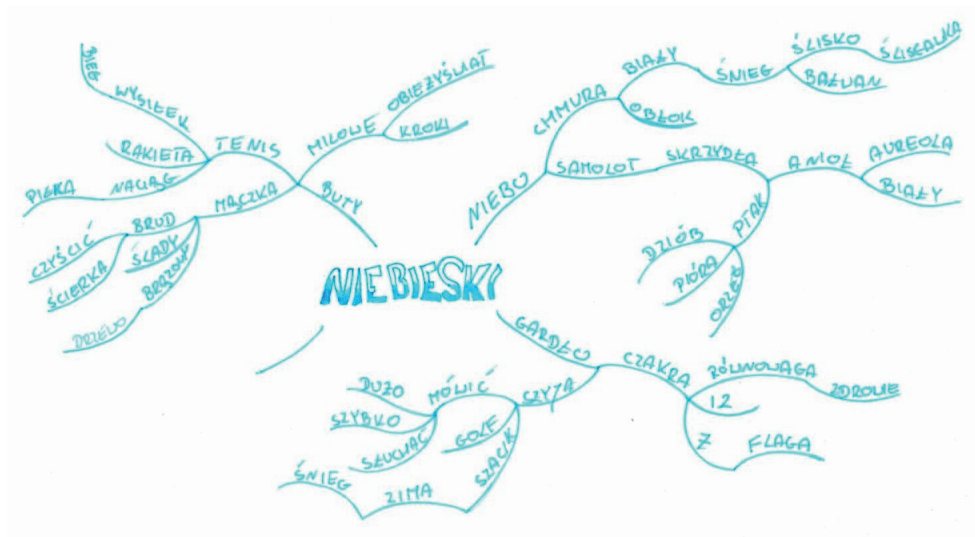 NIEBIESKI
BUTY
MILOWE
OBIEŻYŚWIAT
KROKI
TENIS
WYSIŁEK
BIEG
RAKIETA
NACIĄG
PIŁKA
MĄCZKA
BRUD
CZYŚCIĆ
ŚCIERKA
ŚLADY
BRĄZOWY
DRZEWO
NIEBO
CHMURA
BIAŁY
ŚNIEG
ŚLISKO
ŚLIZGAWKA
BAŁWAN
OBŁOK
SAMOLOT
SKRZYDŁA
ANIOŁ
AUREOLA
BIAŁY
PTAK
DZIÓB
PIÓRA
ORZEŁ
GARDŁO
CZAKRA
RÓWNOWAGA
ZDROWIE
12
Ż
FLAGA
CZYTA
MÓWIĆ
DUŻO
SZYBKO
SŁUCHAĆ
GOLF
SZALIK
ZIMA
ŚNIEG